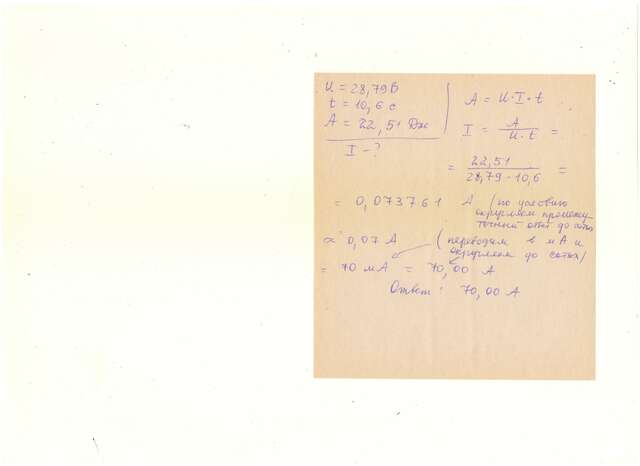 U = 28,79 В
t = 10,6 с
A = 22,51 Дж
I - ?
A = U · I · t
I = A / U · t =
= 22,51 / 28,79 · 10,6 =
= 0,073761 А (по условию
округляем промежу-
точный ответ до сотых
≈ 0,07 А (переводим в мА и
округляем до сотых)
= 70 мА = 70,00 А
Ответ: 70,00 А